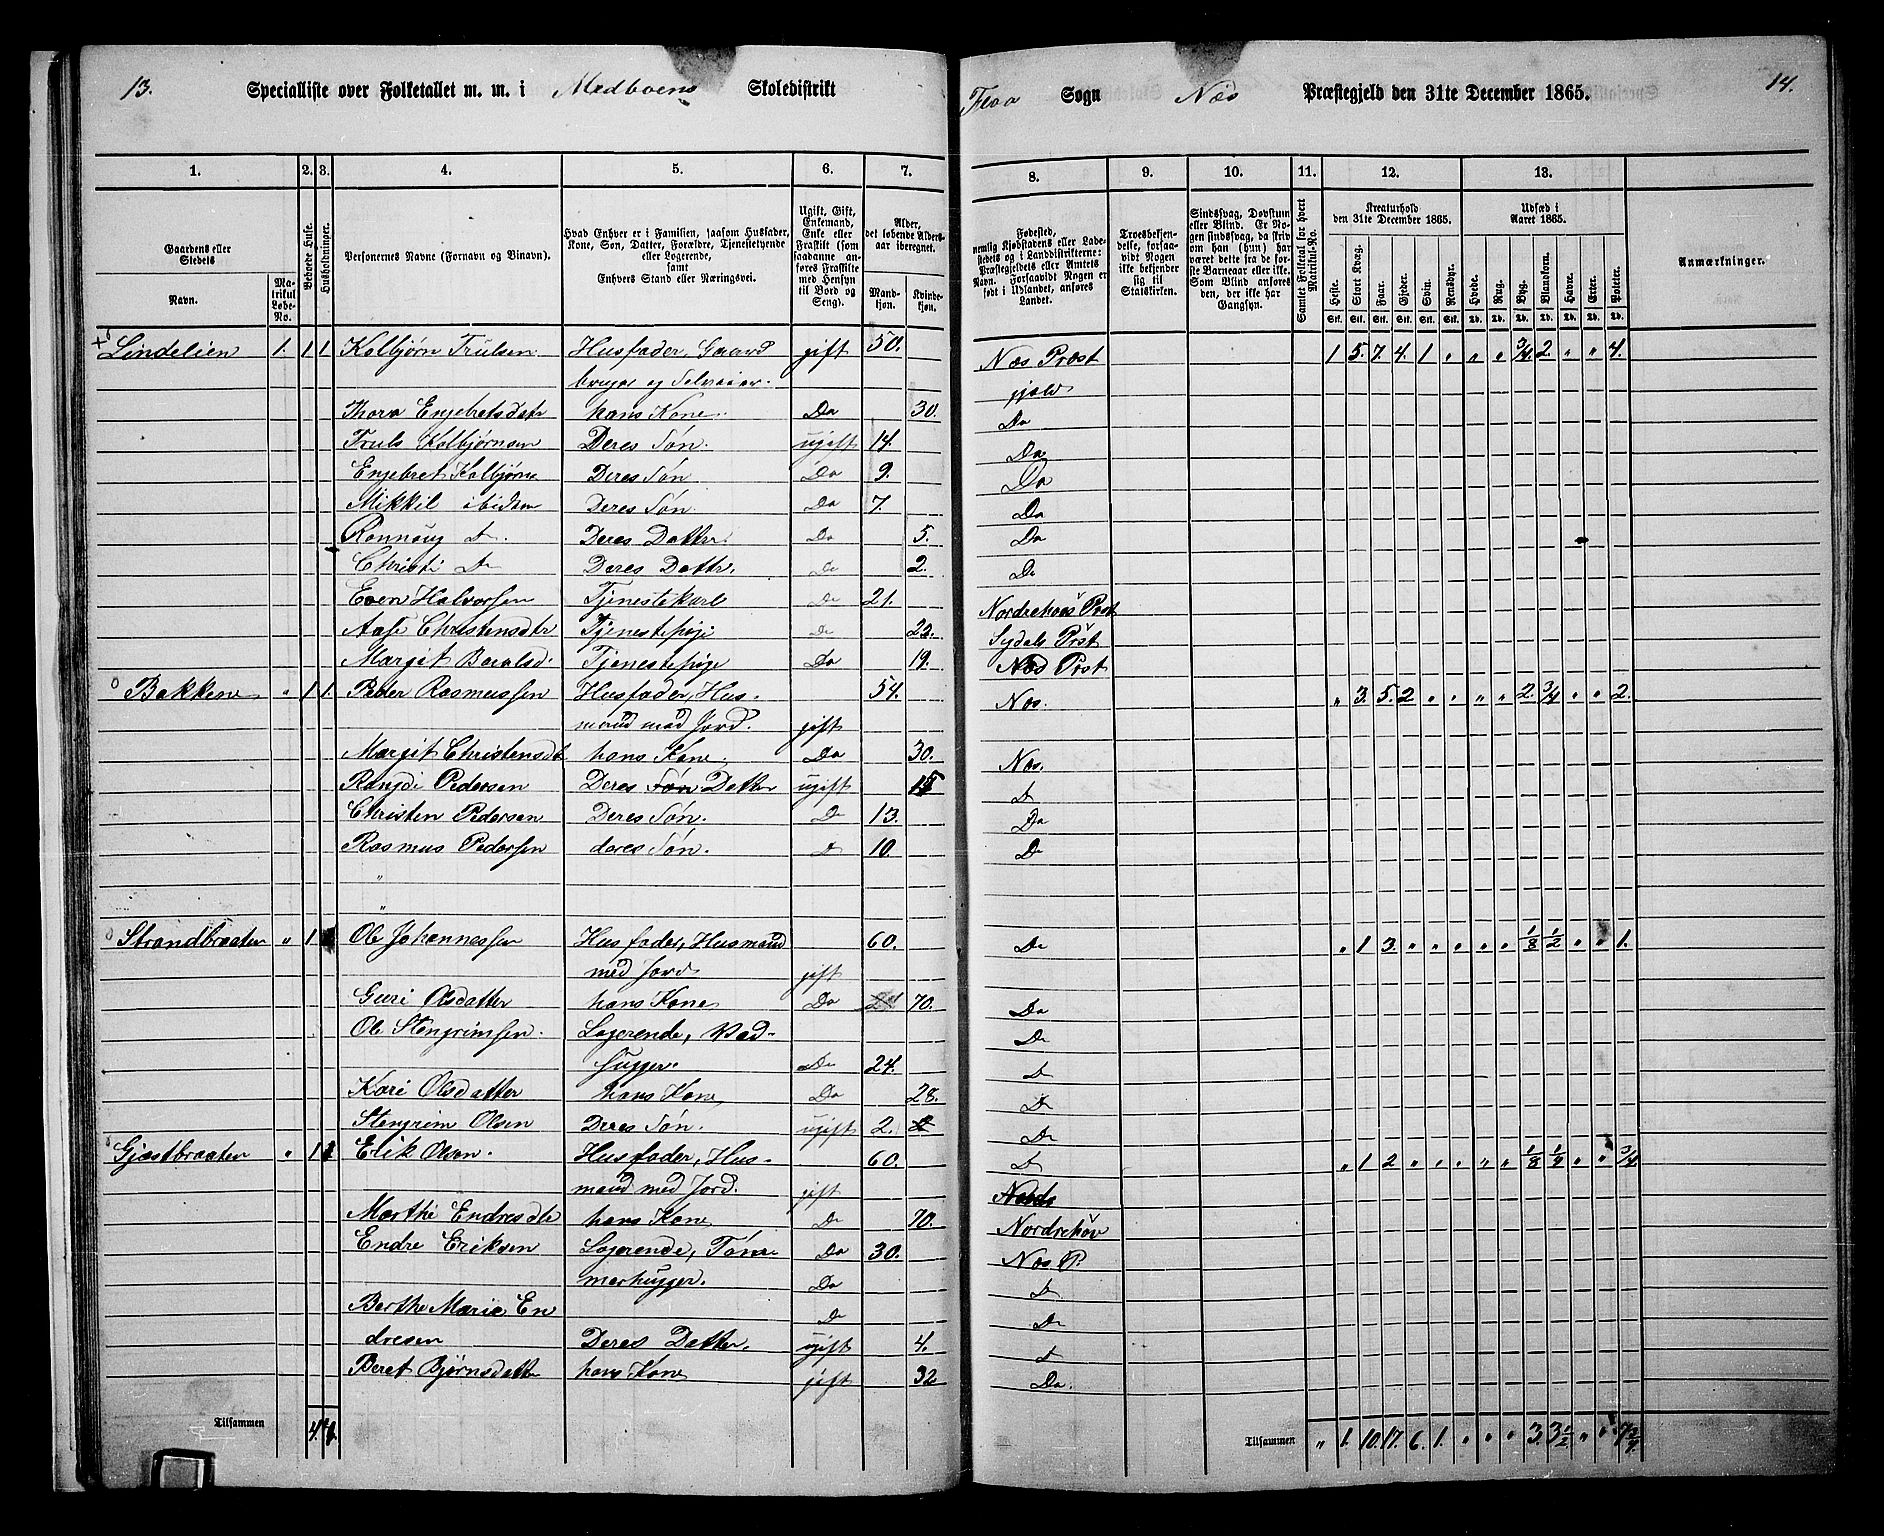 13.
Specialliste over Folketallet m. m. i Medboens Skoledistrikt
Flaa Sogn Næs Præstegjeld den 31te December 1865.
14.
1. 2. 3. 4. 5. 6. 7.
Gaardens eller Stedets
Navn.
Matrikul Løbe-No.
Beboede Huse.
Husholdninger.
Personernes Navne (Fornavn og Binavn).
Hvad Enhver er i Familien, saasom Husfader, Kone, Søn, Datter, Forældre, Tjenestetyende eller Logerende,
samt
Enhvers Stand eller Næringsvei.
Ugift, Gift, Enkemand, Enke eller Fraskilt (som saadanne anføres Fraskilte med Hensyn til Bord og Seng).
Alder, det løbende Alders-aar iberegnet.
Mandkjøn.
Kvindekjøn.
Lindelien 1. 1 1 Kolbjørn Trulsen Husfader, Gaard gift 50.
bruger og Selveier.
Thora Engebretsdatr hans Kone. Do 30.
Truls Kolbjørnsen Deres Søn. ugift 14.
Engebret Kolbjørns Deres Søn Do 9.
Mikkil ibidem Deres Søn. Do 7.
Rønnoug D. Deres Datter. Do 5.
Christi Do Deres Dattr. Do 2.
Even Halvorsen Tjenestekarl Do 21.
Aase Christensdtr Tjenestepige Do 22.
Margit Tjenestepige Do 19.
Bakkene „ 1 1. Peder Rasmussen Husfader, Hus- 54.
mand med Jord. gift
Margit Christensdt hans Kone. Do 30.
Rangdi Pedersen Deres Søn Datter ugift 15
Christen Pedersen Deres Søn. Do 13.
Rasmus Pedersen deres Søn. D 10.
„
„
Strandbraaten „ 1 Ole Johannessen Husfader, Husmand 60.
med Jord gift
Guri Olsdatter hans Kone Do 70.
Ole Stengrimsen. Logerende, Ved-
hugger. Do 24.
Kari Olsdatter hans Kone Do 28.
Stengrim Olsen Deres Søn. ugift 2.
Gjæstbraaten „ 1 1 Erik Olsen. Husfader, Hus- 60.
mand med Jord. gift
Marthe Endresdtr hans Kone Do 70.
Endre Eriksen Logerende, Tøm- Do 30.
merhugger. Do
Berthe Marie En Do
dresen Deres Datter. ugift 4.
Beret Bjørnsdattr hans Kone gift 32
Tilsammen 4. 4.
8. 9. 10. 11. 12. 13.
Fødested,
nemlig Kjøbstadens eller Ladestedets og i Landdistrikterne: Præstegjeldets eller Amtets Navn. Forsaavidt Nogen er født i Udlandet, anføres Landet.
Troesbekjendelse, forsaavidt Nogen ikke bekjender sig til Statskirken.
Sindssvag, Døvstum eller Blind. Er Nogen sindssvag, da skriv om han (hun) har været dette fra de første Barneaar eller ikke. Som Blind anføres den, der ikke har Gangsyn.
Samlet Folketal for hvert Matrikul-No.
Kreaturhold den 31te December 1865.
Heste. Stort Kvæg. Faar. Gjeder. Svin. Rensdyr.
Stk. Stk. Stk. Stk. Stk. Stk.
Udsæd i Aaret 1865.
Hvede. Rug. Byg. Blandkorn. Havre. Erter. Poteter.
Td. Td. Td. Td. Td. Td. Td.
Anmærkninger.
Næs Præst 1 5. 7. 4. 1 „ „ „ 3/4 2. „ „ 4.
gjæld
Do
Do
Do
Do
Do
Do
Nordrehous Prst
Sydals Prst
Næs Prst
Næs. „ 3. 5. 2 „ „ „ „ 2. 3/4 „ „ 2.
Næs.
D
Do
Do
Do „ 1 3. „ „ „ „ „ 1/8 1/2 „ „ 1.
Do
Do
D
D
Do
D „ 1 2 „ „ „ „ „ 1/8 1/4 „ „ 3/4
Nordrehov
Næs P.
D
Do
D
Do.
Tilsammen „ 1. 10. 17. 6. 1. „ „ „ 3. 3 1/2 „ „ 7 3/4